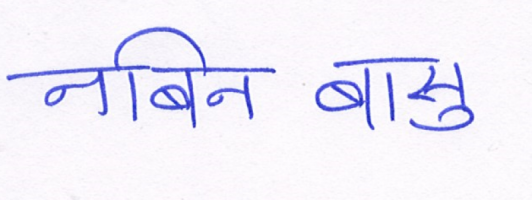 नबिन बासु